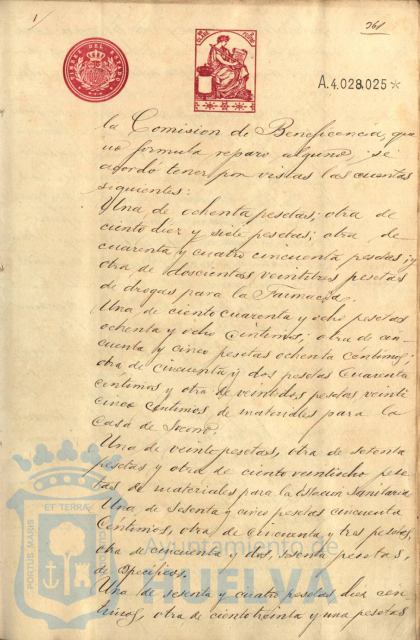 1/
361
TIMBRE DEL ESTADO
A.4.028.025*
la Comision de Beneficencia, que
no formula reparo alguno, se
acordó tener por vistas las cuentas
siguientes:
Una de ochenta pesetas; otra de
ciento diez y siete pesetas; otra de
cuarenta y cuatro cincuenta pesetas; y
otra de doscientas veintitres pesetas
de drogas para la Farmacia.
Una de ciento cuarenta y ocho pesetas
ochenta y ocho céntimos; otra de cin-
cuenta y cinco pesetas ochenta centimos;
otra de cincuenta y dos pesetas cuarenta
céntimos y otra de veintidos pesetas veinte
cinco céntimos de materiales para la
Casa de Socorro.
Una de veinte pesetas, otra de setenta
pesetas y otra de ciento veintiocho pese-
tas de materiales para la Estacion Sanitaria
Una de sesenta y cinco pesetas cincuenta
centimos, otra de cincuenta y tres pesetas,
otra de cincuenta y dos, sesenta pesetas,
de especificos.
Una de sesenta y cuatro pesetas diez cen-
timos, otra de ciento treinta y una pesetas
PORTUS MARIS
ET TERRAE
CUSTODIA
Ayuntamiento de
HUELVA